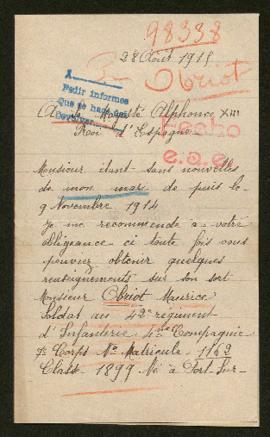 98338
28 Août 1915
Obriot
A
Pedir informes
que se haga
A sa Majesté Alphonse XIII
Roi d'Espagne
Hecho
e.a.e.
Monsieur étant sans nouvelles
de mon mari de puis le
9 Novembre 1914
Je me recommende à votre
obligeance ci toute fois vous
pouviez obtenir quelques
renseignements sur son sort
Monsieur Obriot Maurice
Soldat au 42e régiment
d'Infanterie 4me Compagnie
7e Corps No Matricule 1142
Classe 1899 Né à Fort-Sur-